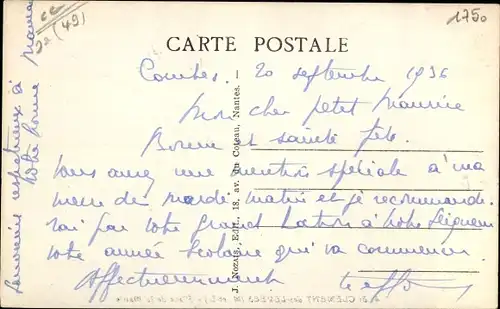 1750
52 (49)
CARTE POSTALE
Combes. 20 septembre 1936
Mon cher petit Maurice
Bonne et sainte fête.
Vous aurez une mention spéciale à ma
messe de mardi matin et je recommande
rai par votre grand à Notre Seigneur
votre année scolaire qui va commencer
Affectueusement
Souvenirs respectueux à
votre bonne maman
J. Nozais, Edit., 18, av. du Coteau, Nantes.